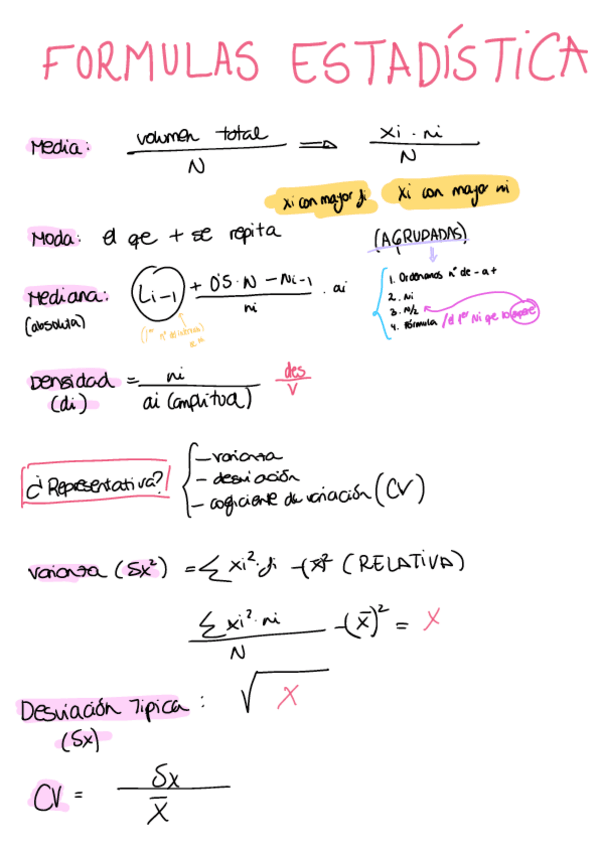 FORMULAS ESTADÍSTICA
Media: volumen total / N ⇒ xi · ni / N
xi con mayor fi
xi con mayor ni
Moda: el qe + se repita
(AGRUPADAS)
Mediana: Li-1 + 0'5 · N - Ni-1 / ni · ai
(absoluta)
1. Ordenamos nº de - a +
2. Ni
3. N/2
4. Fórmula / el 1er Ni que lo supere
Densidad = ni / ai (amplitud)
(di)
des / V
¿Representativa?
- varianza
- desviación
- coeficiente de variación (CV)
Varianza (Sx²) = Σ xi² · fi - (x̄)² (RELATIVA)
Σ xi² · ni / N - (x̄)² = X
Desviación Tipica : √X
(Sx)
CV = Sx / x̄